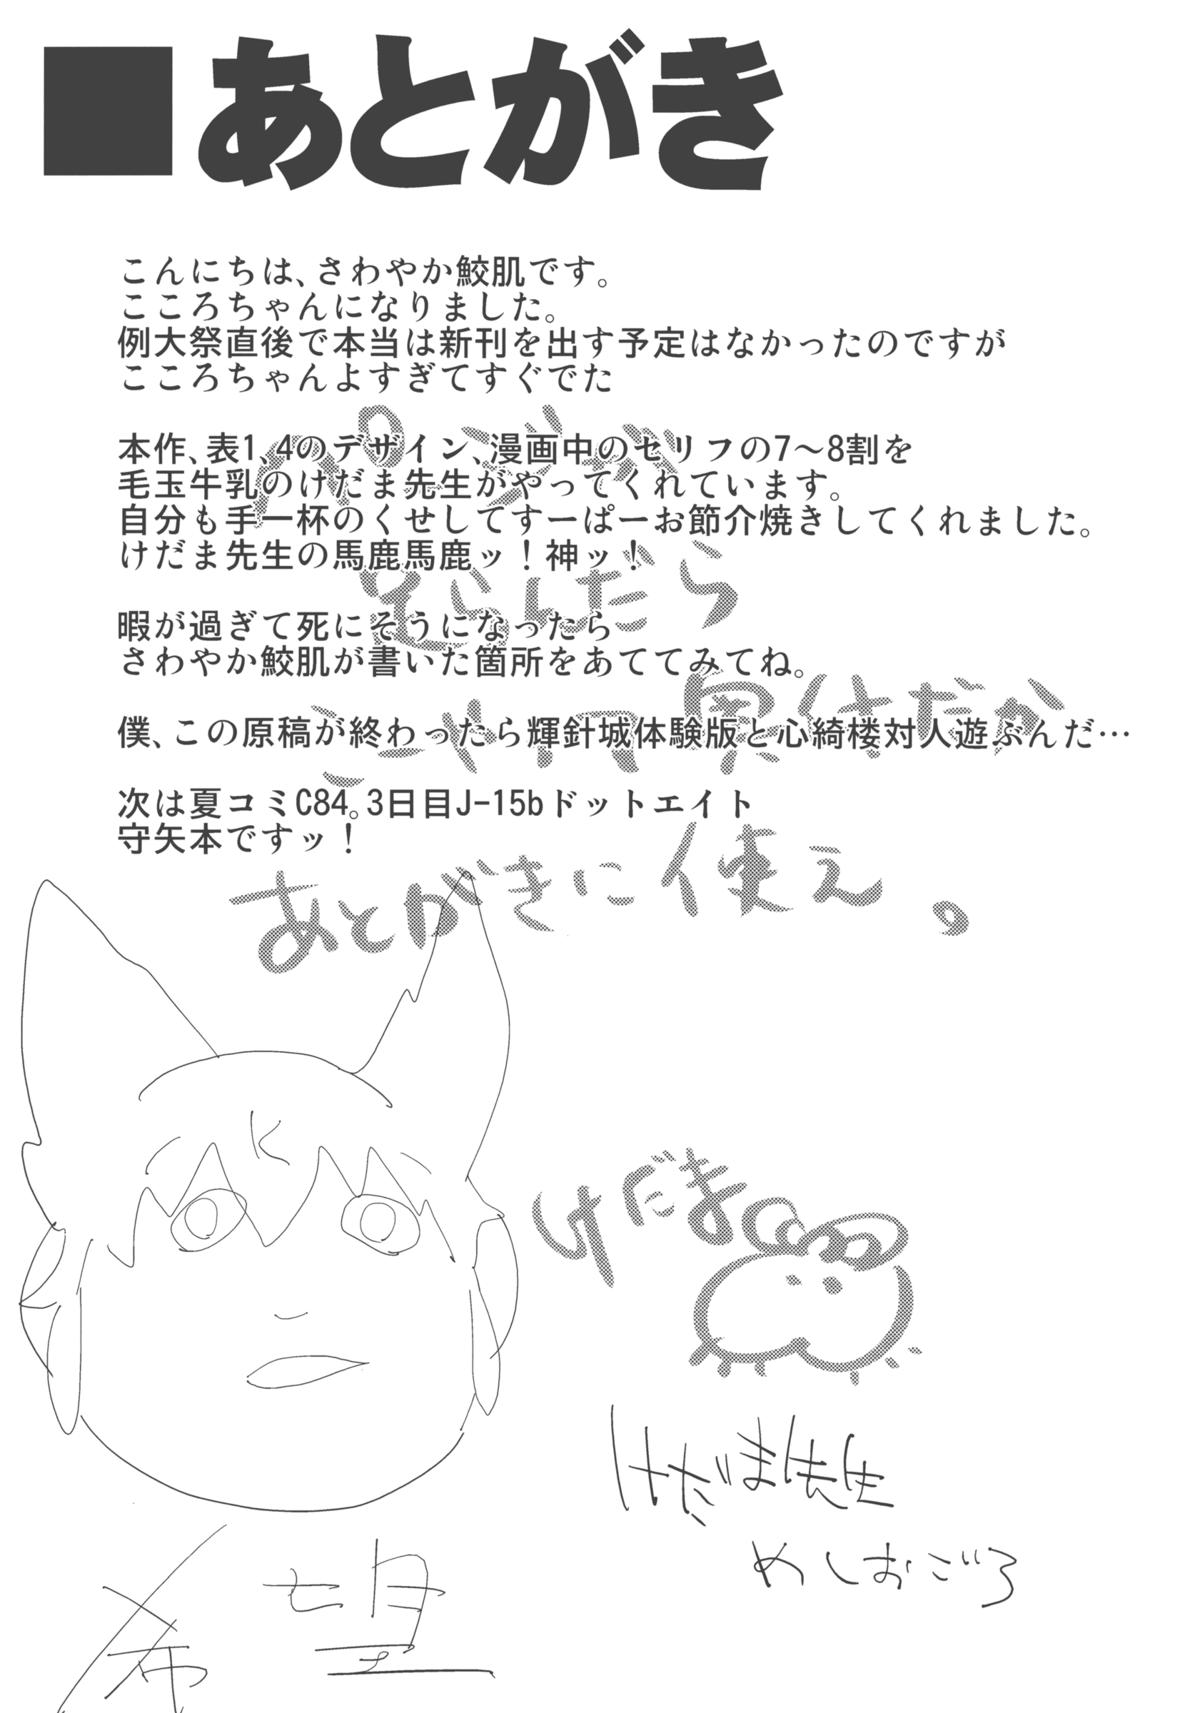 ■あとがき
こんにちは、さわやか鮫肌です。
こころちゃんになりました。
例大祭直後で本当は新刊を出す予定はなかったのですが
こころちゃんよすぎてすぐでた
本作、表1、4のデザイン、漫画中のセリフの7〜8割を
毛玉牛乳のけだま先生がやってくれています。
自分も手一杯のくせしてすーぱーお節介焼きしてくれました。
けだま先生の馬鹿馬鹿ッ！神ッ！
暇が過ぎて死にそうになったら
さわやか鮫肌が書いた箇所をあててみてね。
僕、この原稿が終わったら輝針城体験版と心綺楼対人遊ぶんだ…
次は夏コミC84。3日目J-15bドットエイト
守矢本ですッ！
ページが
足らんだら
こやつ実体だか
あとがきに使え。
けだま
けだま先生
めしおごろ
希望